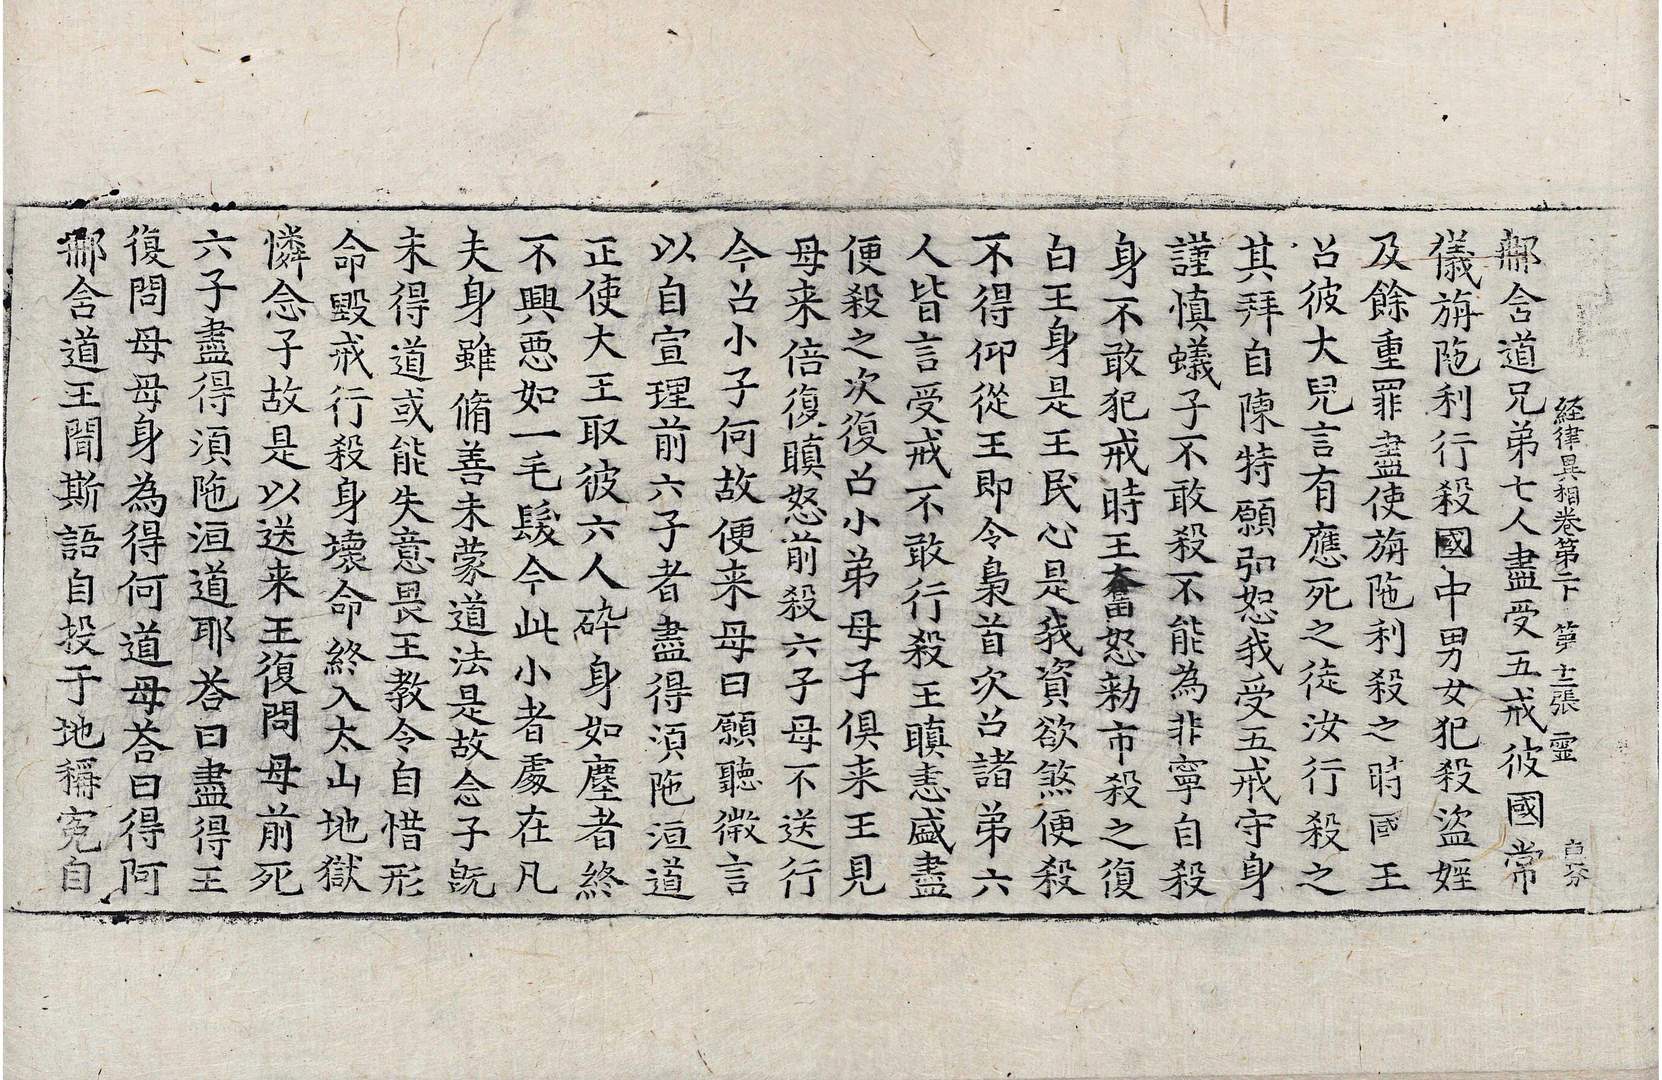 経律異相卷第二下 第十二張 霊
那舎道兄弟七人盡受五戒彼國常
儀旃陁利行殺國中男女犯殺盜婬
及餘重罪盡使旃陁利殺之時國王
召彼大兒言有應死之徒汝行殺之
其拜自陳特願弘恕我受五戒守身
謹慎蟻子不敢殺不能為非寧自殺
身不敢犯戒時王奮怒勑市殺之復
白王身是王民心是我資欲煞便殺
不得仰從王即令梟首次召諸弟六
人皆言受戒不敢行殺王瞋恚盛盡
便殺之次復召小弟母子俱来王見
母来倍復瞋怒前殺六子母不送行
今召小子何故便来母曰願聽微言
以自宣理前六子者盡得湏陁洹道
正使大王取彼六人碎身如塵者終
不興惡如一毛髮今此小者處在凡
夫身雖脩善未蒙道法是故念子既
未得道或能失意畏王教令自惜形
命毀戒行殺身壞命終入太山地獄
憐念子故是以送来王復問母前死
六子盡得湏陁洹道耶荅曰盡得王
復問母母身為得何道母荅曰得阿
那舎道王聞斯語自投于地稱寃自